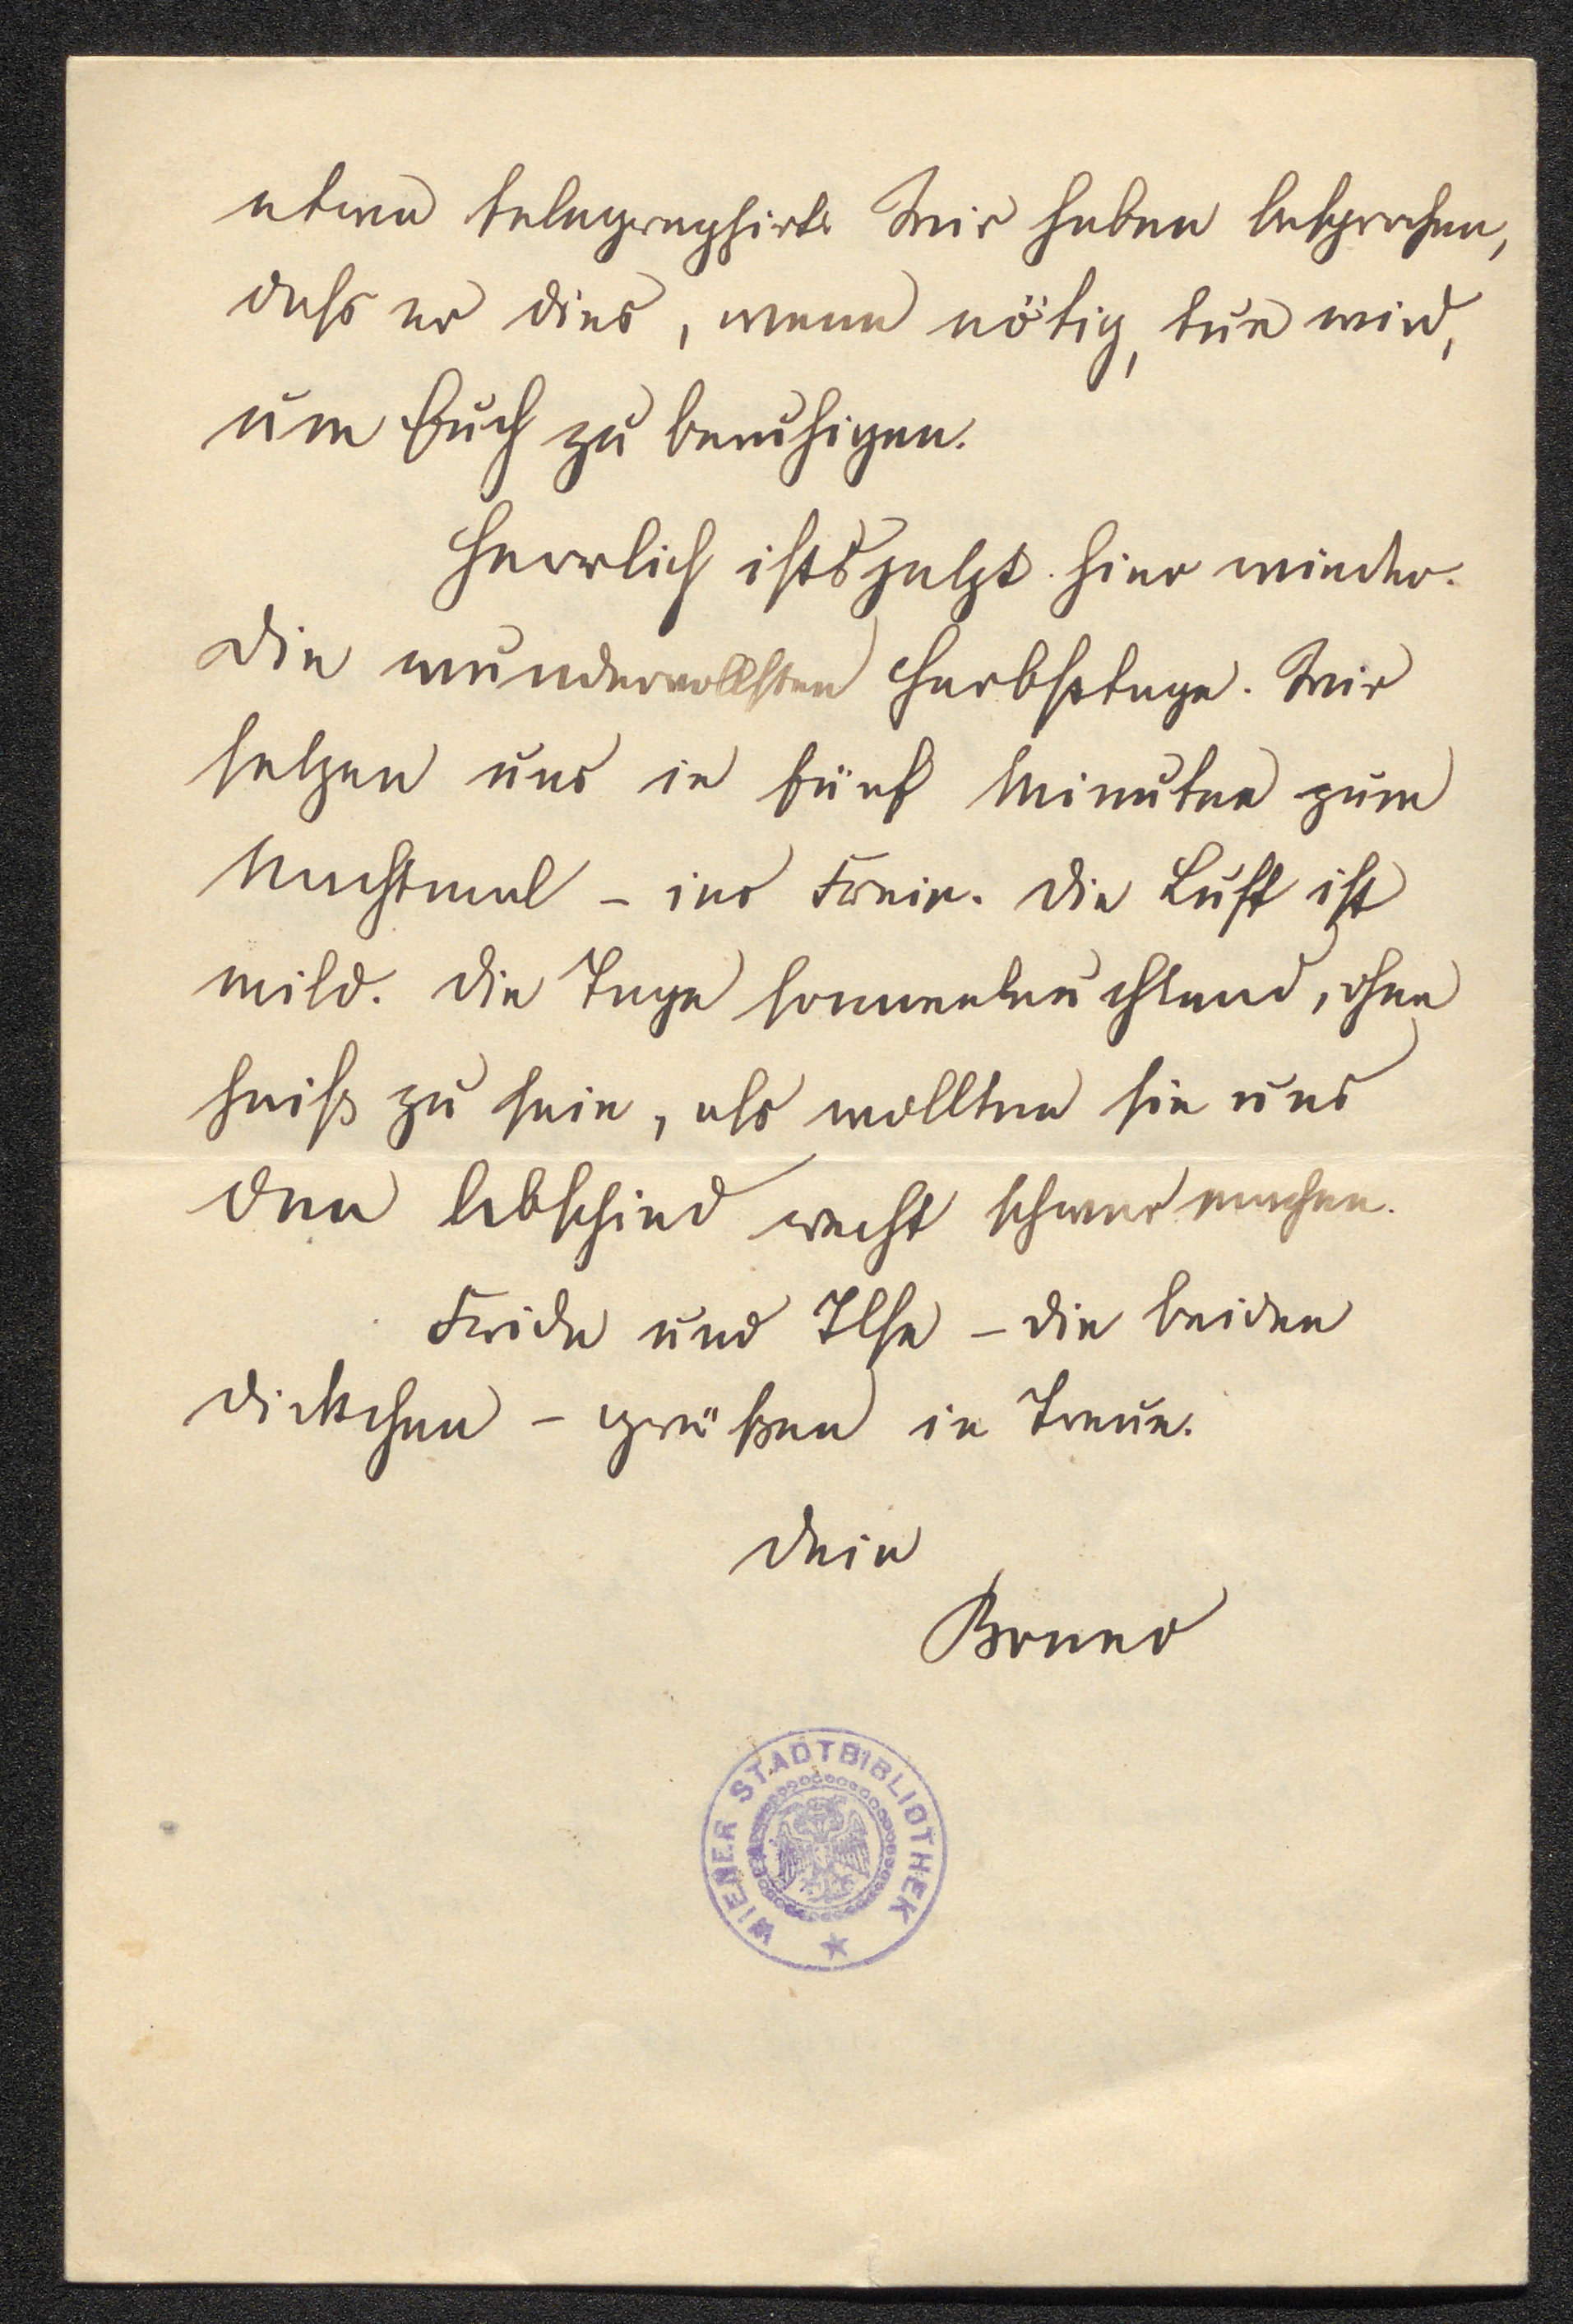 etwa telegraphirt. Wir haben besprochen,
dass er dies, wenn nötig, tun wird,
um Euch zu beruhigen.
Herrlich ists jetzt hier wieder.
Die wundervollsten Herbsttage. Wir
setzen uns in fünf Minuten zum
Nachtmal – ins Freie. Die Luft ist
mild. Die Tage sonneleuchtend, ohne
heiß zu sein, als wollten sie uns
den Abschied recht schwer machen.
Frida und Ilse – die beiden
Dickchen – grüßen in Treue.
Dein
Bruno
WIENER STADTBIBLIOTHEK